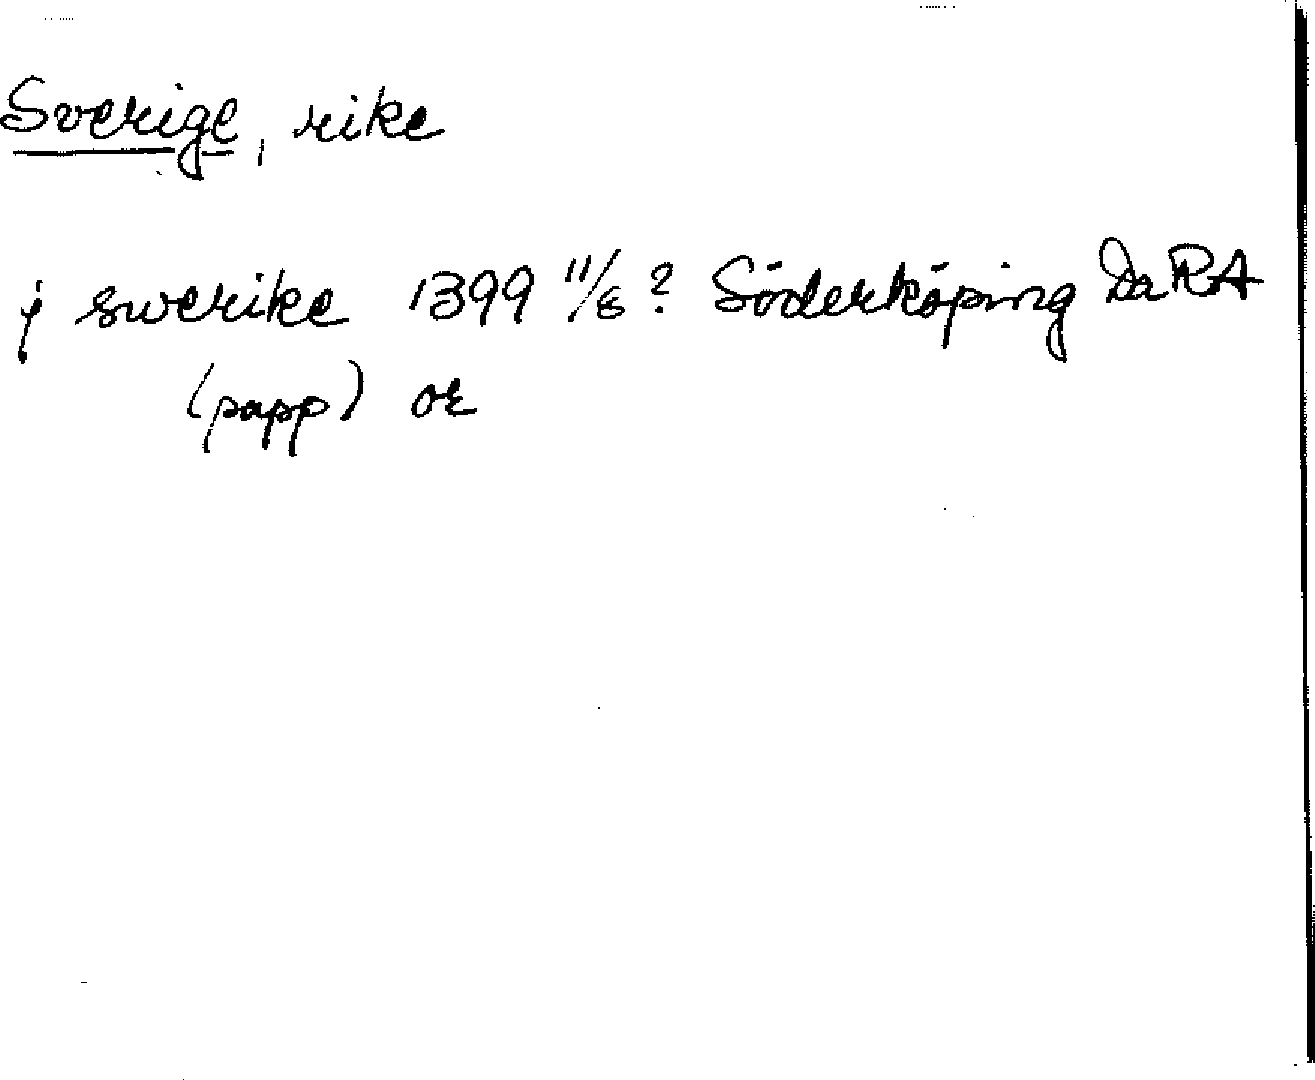 Sverige, rike
j swerike 1399 11/8? Söderköping DaRA
(papp) or